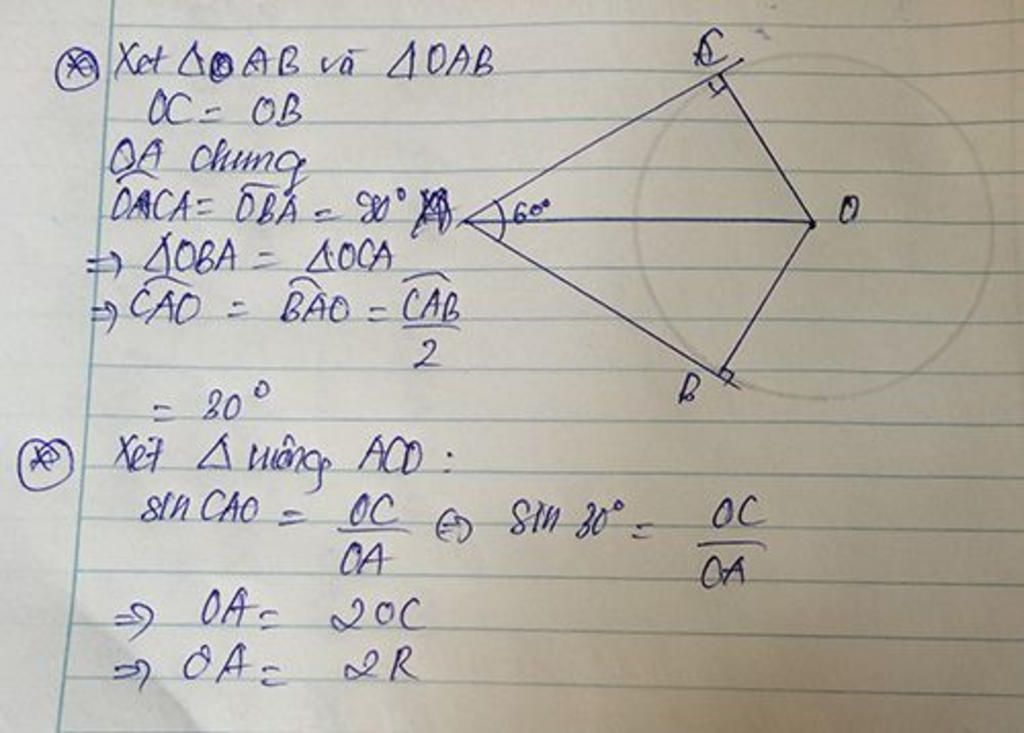 Xét ΔOAB và ΔOAB
OC = OB
OA chung
OACA = OBA = 90°
⇒ ΔOBA = ΔOCA
⇒ CAO = BAO = CAB / 2
= 30°
Xét Δ vuông ACO :
sin CAO = OC / OA ⇔ sin 30° = OC / OA
⇒ OA = 2OC
⇒ OA = 2R
C
60°
O
B